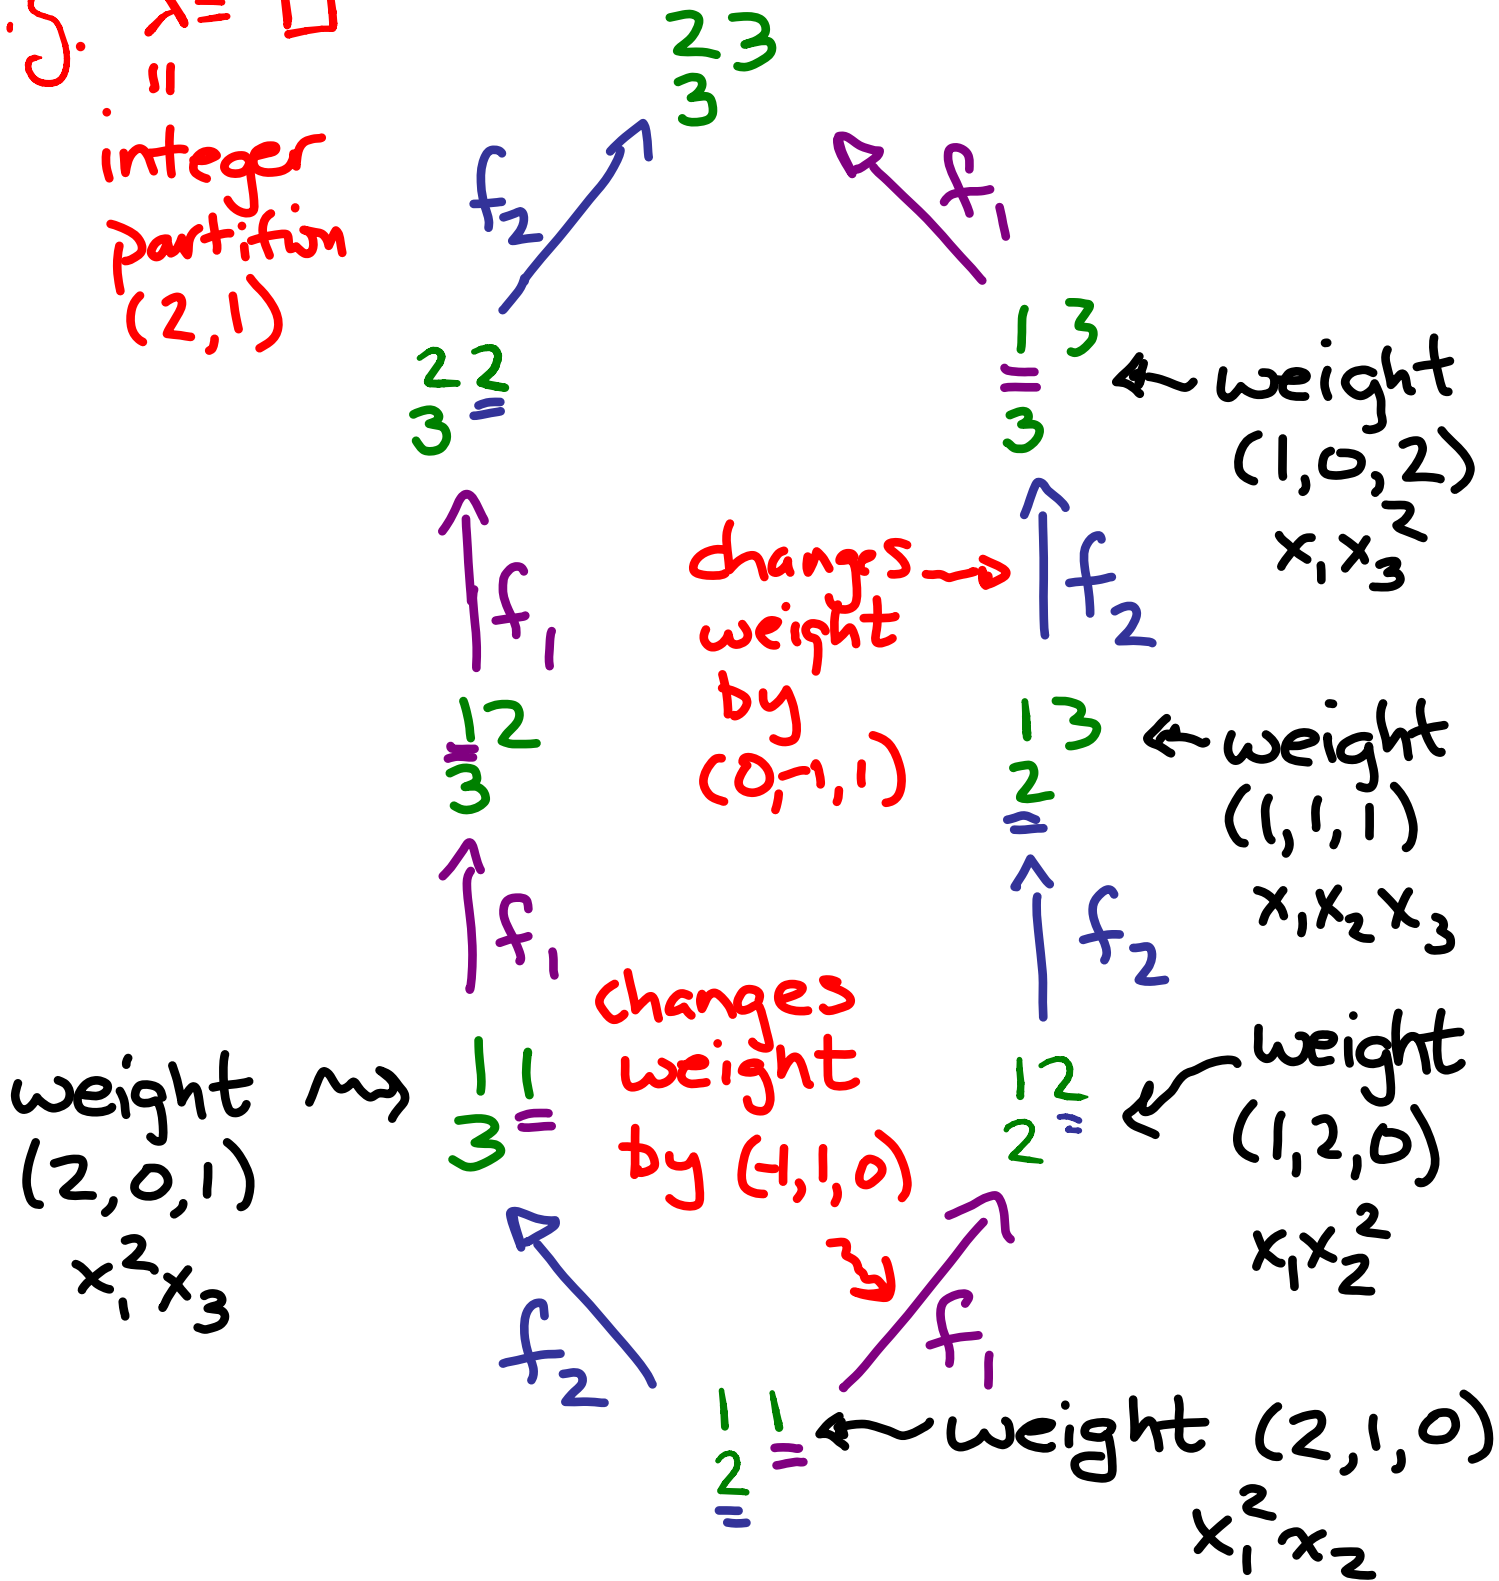 .g. λ = □
=
integer
partition
(2,1)
2 3
3
f₂
f₁
2 2
3
1 3
3
weight
(1,0,2)
x₁x₃²
f₁
changes
weight
by
(0,-1,1)
f₂
1 2
3
1 3
2
weight
(1,1,1)
x₁x₂x₃
f₁
f₂
weight
(2,0,1)
x₁²x₃
1 1
3
changes
weight
by (-1,1,0)
1 2
2
weight
(1,2,0)
x₁x₂²
f₂
f₁
1 1
2
weight (2,1,0)
x₁²x₂